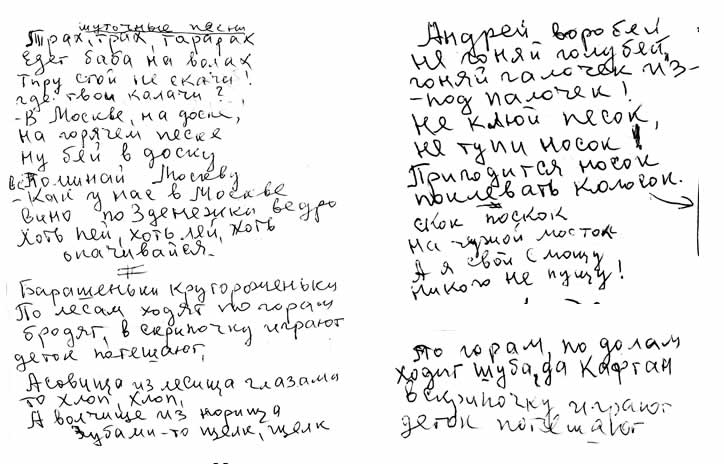 шуточные песни
Трах, трих, тарарах
Едет баба на волах
Тпру стой не скачи!
где твои калачи?
-В Москве, на доске,
на горячем песке
ну бей в доску
вспоминай Москву
-Как у нас в Москве
вино по 3 денежки ведро
Хоть пей, хоть лей, хоть
опачивайся.
Барашеньки круторожeньки
По лесам ходят по горам
бродят, в скрипочку играют
деток потешают,
А совища из лесища глазами
то хлоп, хлоп,
А волчище из норища
Зубами-то щелк, щелк
Андрей воробей
не гоняй голубей,
гоняй галочек из-
-под палочек!
не клюй песок,
не тупи носок!
Пригодится носок
поклевать колосок.
скок поскок
на чужой мосток
А я свой смощу
никого не пущу!
По горам, по долам
ходит шуба, да Кафтан
в скрипочку играют
деток потешают